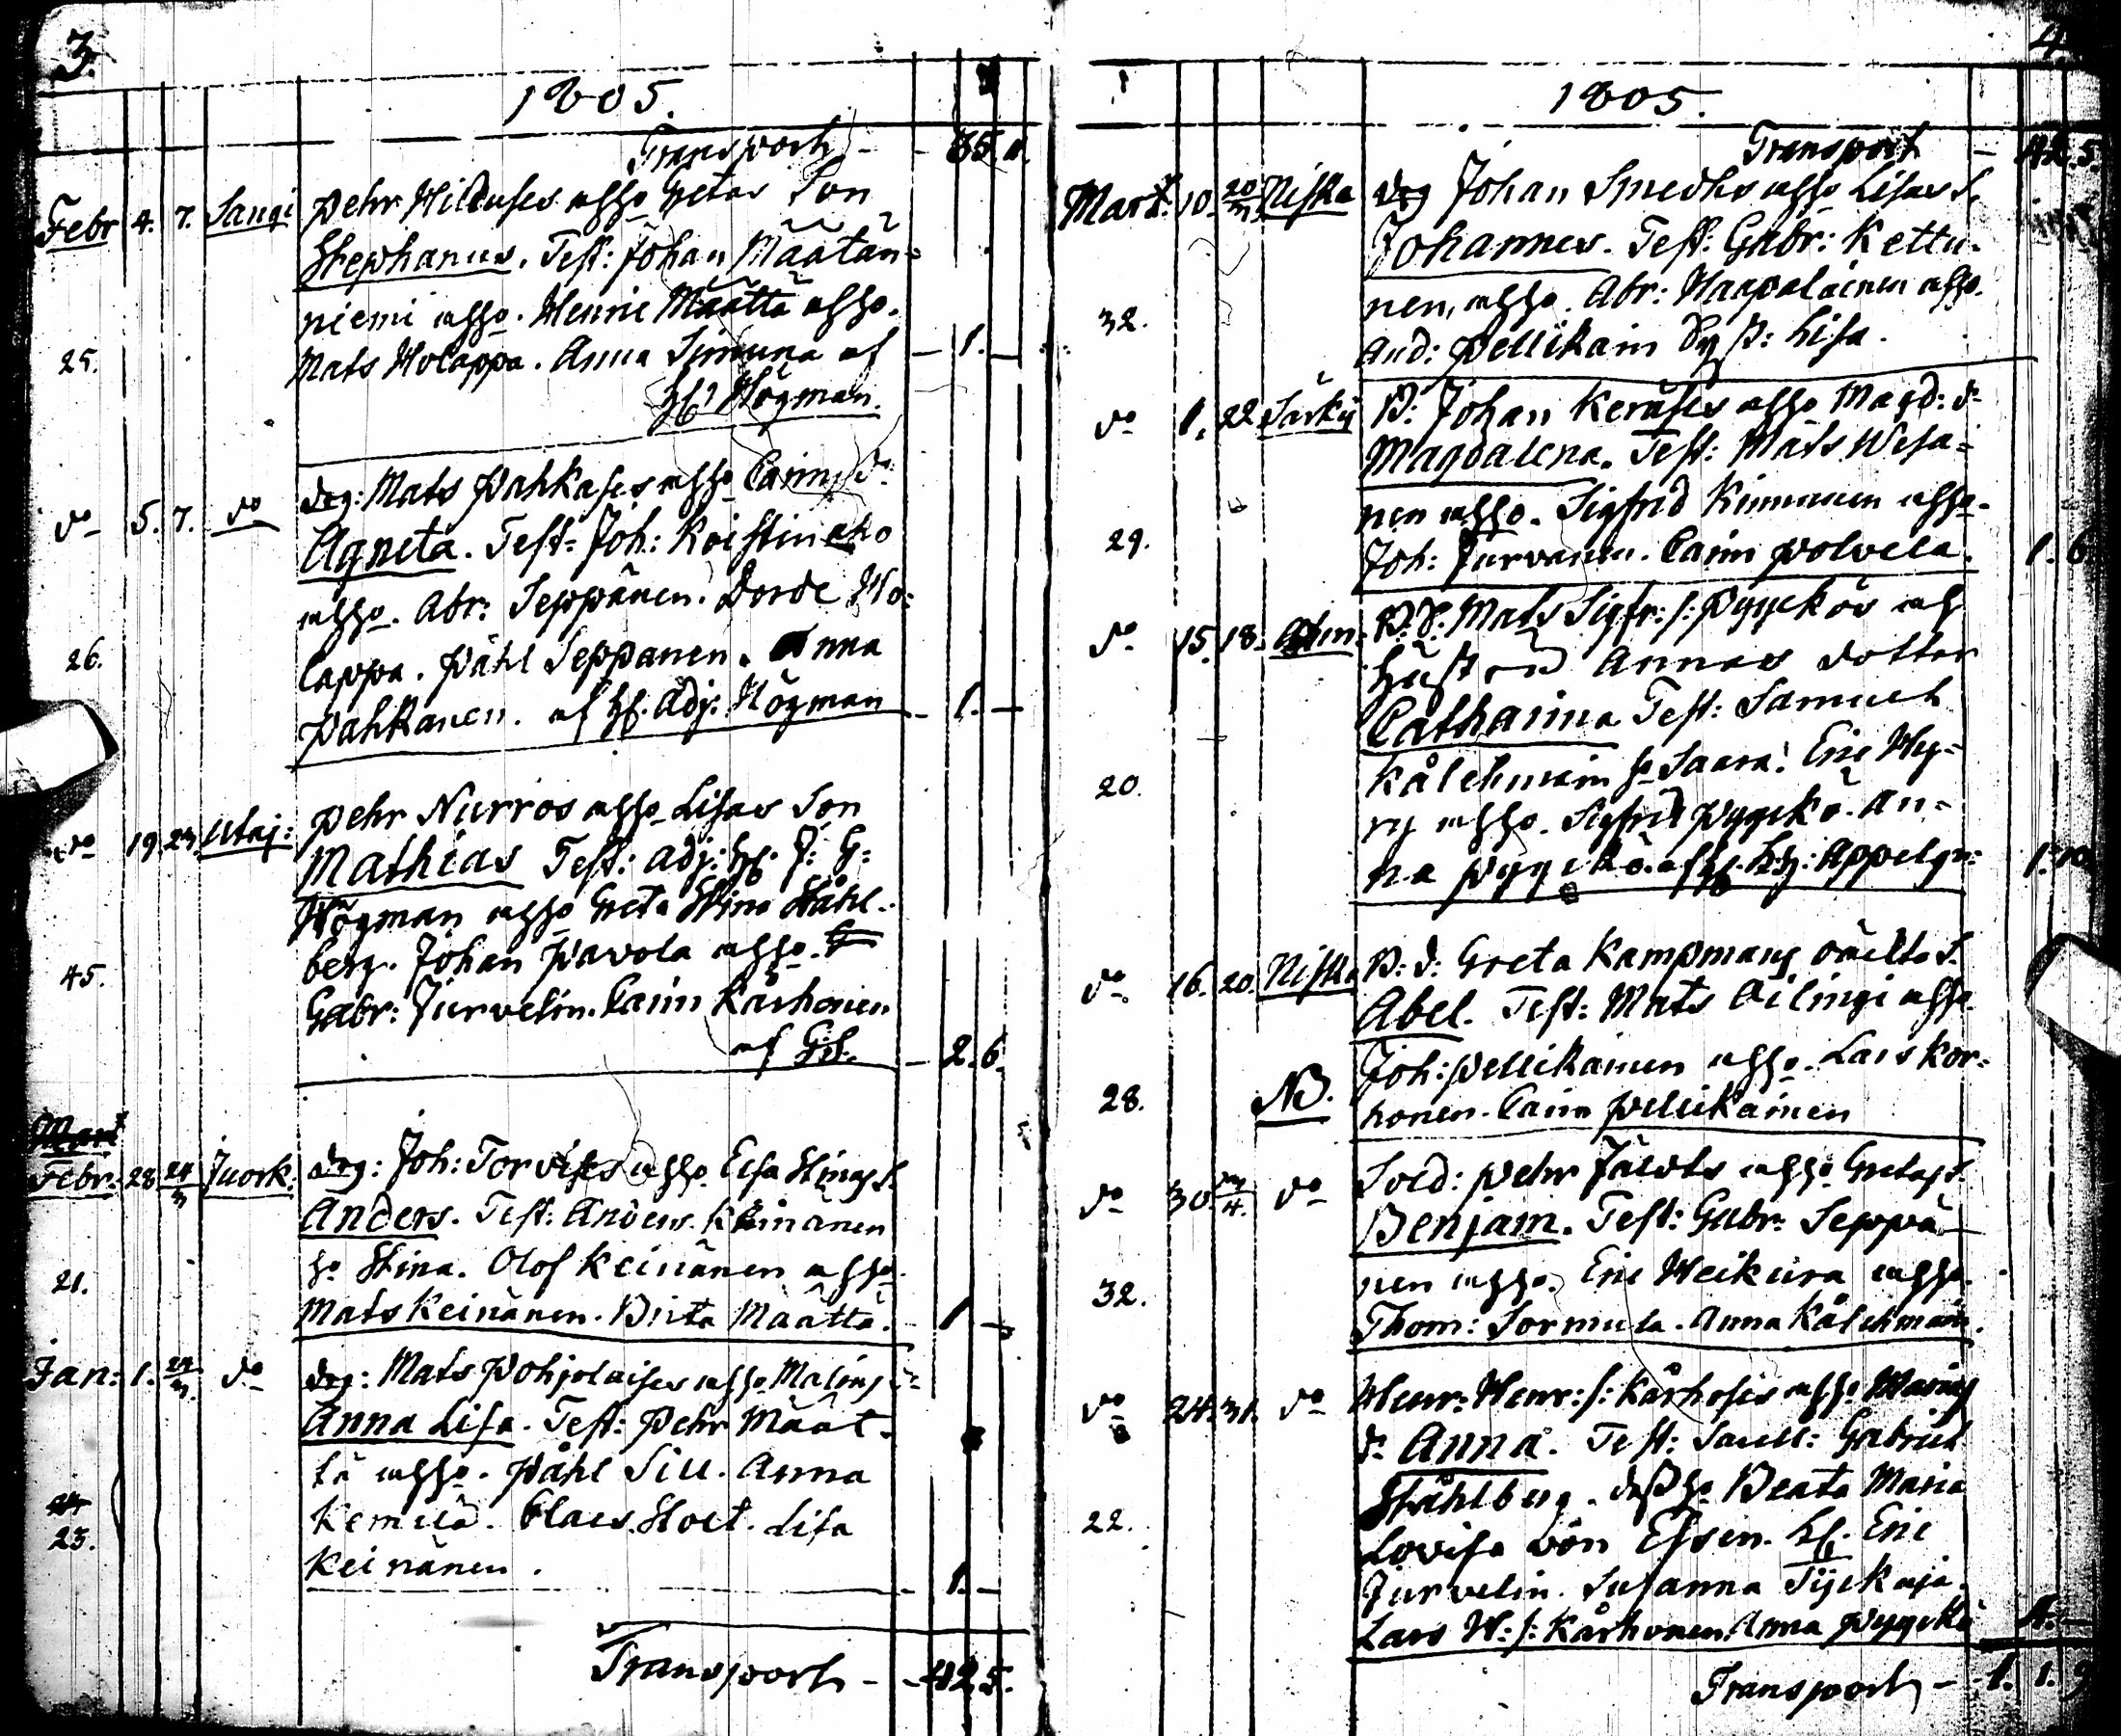 3.
1805.
Transport - - 35.11.
Febr 4. 7. Sangi Pehr Hilduses ahso Gretas Son
Stephanus. Test: Johan Määtän=
niemi ahso. Henric Määttä ahso.
25. Mats Holappa. Anna Simuna af - 1. -
Högman.
do 5. 7. do drg: Mats Pahkases ahso Carins dr
Agneta. Test: Joh: Koistin aho
ahso. Abr: Seppänen. Dorde Ho=
26. lappa. Påhl Seppänen. Anna
Pahkanen. af H. Adj. Högman - 1. -
do 19. 23. Utaj: Pehr Nurros ahso Lisas Son
Mathias Test: Adj: H. J: G:
Högman ahso Greta Stina Ståhl=
berg. Johan Pavola ahso.
45. Gabr: Jurvelin. Carin Kårhonen
af - 2. 6.
Mart
Febr: 28 24/3 Juork: drg: Joh: Torvises ahso Lisa Stinas S.
Anders. Test: Anders Keinänen
21. ho Stina. Olof Keinänen ahso.
Mats Keinänen. Brita Määttä. 1 -
Jan: 1. 24/3. do drg: Mats Pohjolaises ahso Malins dr
Anna Lisa. Test: Pehr Määt-
tä ahso. Påhl Sill. Anna
24 Kemilä. Claes Holt. Lisa
23. Keinänen. - 1. -
Transport - - 42 5.
4
1805.
Transport - 42. 5
Mart. 10. 20/3 Niska drg Johan Smeds ahso Lisas S.
Johannes. Test: Gabr: Kettu=
32. nen, ahso. Abr: Haapalainen ahso.
And: Pellikain Lisa.
do 1. 22 Särkij B: Johan Keräses ahso Magd: dr
Magdalena. Test: Mats Wesa=
nen ahso. Sigfrid Kinnunen ahso.
29. Joh: Jurvanen. Carin Polvela. 1. 6.
do 15. 18. Mats Sigfr: s: Pyyckös
hustru Annas dotter
Catharina Test: Samuel
20. Kålehmain ho Saara. Eric Hy=
ry ahso. Sigfrid Pyyckö. An=
na Pyyckö. af H. Appelgr: 1. 10
do 16. 20. Niska P: d: Greta Kampmans oäkta S.
Abel. Test: Mats Oilingi ahso.
Joh: Pellikainen ahso. Lars Kor=
28. NB. honen. Carin Pellikainen
do 30. do Sold: Pehr Jäwts ahso Gretas S.
Benjam. Test: Gabr: Seppä
32. nen ahso. Eric Heikura ahso.
Thom: Sormula. Anna Kålehmain.
do 24. 31. do Henr: Henr: s: Kårhoses ahso Marias
dr Anna. Test: Gabriel
Ståhlberg. Beata Maria
22. Lovisa von Essen. H. Eric
Jurvelin. Susanna Tijckaja.
Lars H: s: Kårhonen. Anna Pyyckö 4. -
Transport - - 1. 1. 9